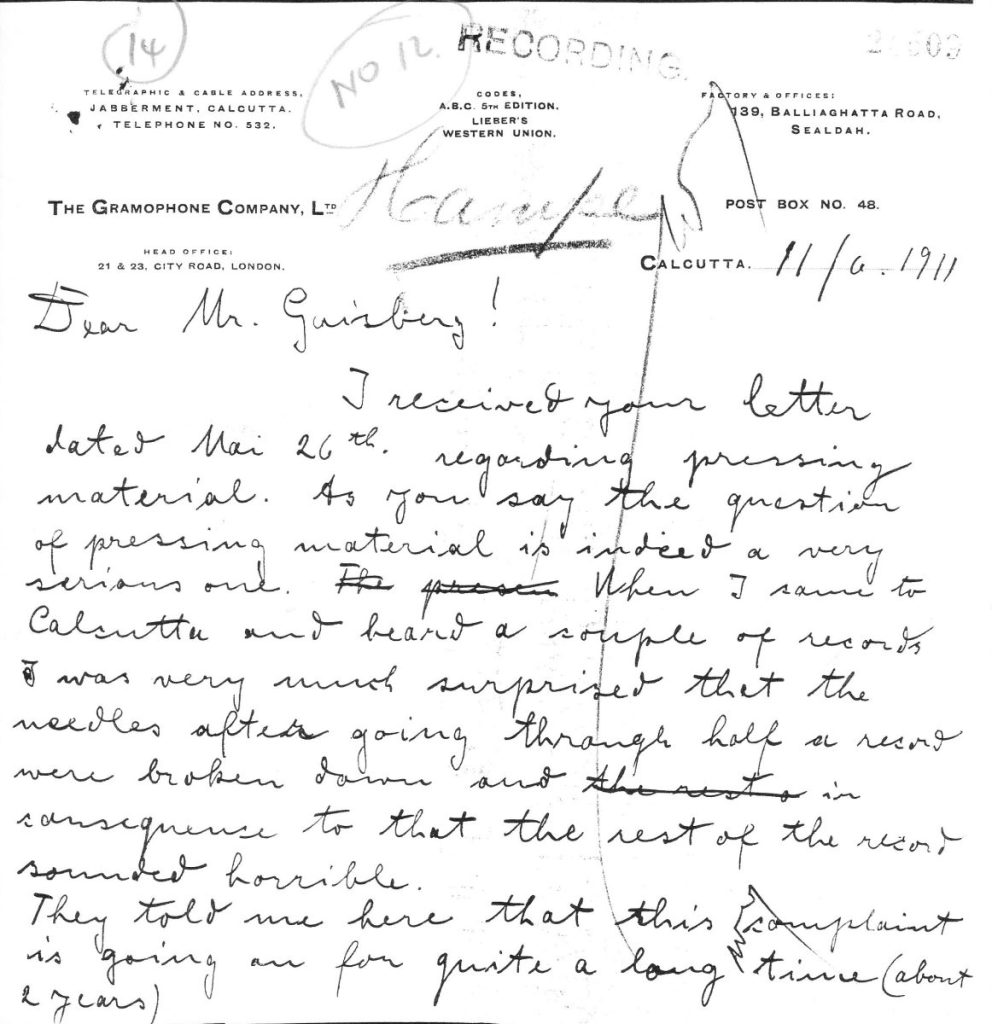 14
NO 12.
RECORDING.
TELEGRAPHIC & CABLE ADDRESS,
JABBERMENT, CALCUTTA.
TELEPHONE NO. 532.
CODES,
A.B.C. 5TH EDITION.
LIEBER'S
WESTERN UNION.
FACTORY & OFFICES:
139, BALLIAGHATTA ROAD,
SEALDAH.
THE GRAMOPHONE COMPANY, LTD
Hampe
POST BOX NO. 48.
HEAD OFFICE:
21 & 23, CITY ROAD, LONDON.
CALCUTTA. 11/6. 1911
Dear Mr. Gaisberg!
I received your letter
dated Mai 26th. regarding pressing
material. As you say the question
of pressing material is indeed a very
serious one. The presen When I came to
Calcutta and heard a couple of records
I was very much surprised that the
needles after going through half a record
were broken down and the rest o in
consequence to that the rest of the record
sounded horrible.
They told me here that this complaint
is going on for quite a long time (about
2 years)